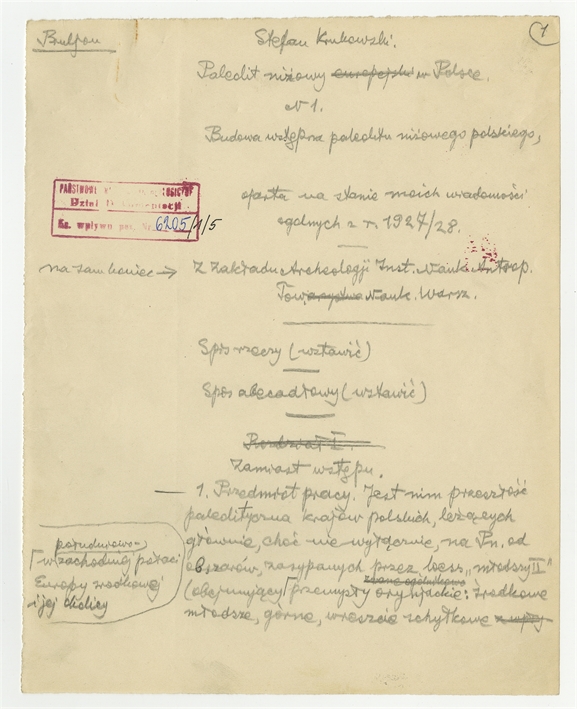 1
Brulion
Stefan Krukowski.
Paleolit niżowy europejski w Polsce.
N 1.
Budowa wstępna paleolitu niżowego polskiego,
oparta na stanie moich wiadomości
ogólnych z r. 1927/28.
PAŃSTWOWE
Dział Dokumentacji
Ks. wpływu poz. Nr. 6205/1/5
na sam koniec → Z Zakładu Archeologji Inst. Nauk Antrop.
Towarzystwa Nauk. Warsz.
Spis rzeczy (wstawić)
Spis abecadłowy (wstawić)
Rozdział I.
Zamiast wstępu.
— 1. Przedmiot pracy. Jest nim przeszłość
paleolityczna krajów polskich, leżących
głównie, choć nie wyłącznie, na Pn. od
obszarów, zasypanych przez less „młodszy II"
(obejmujący przemysły oryniackie: środkowe
młodsze, górne, wreszcie schyłkowe z
południowo-
w zachodniej połaci
Europy środkowej
i jej okolicy